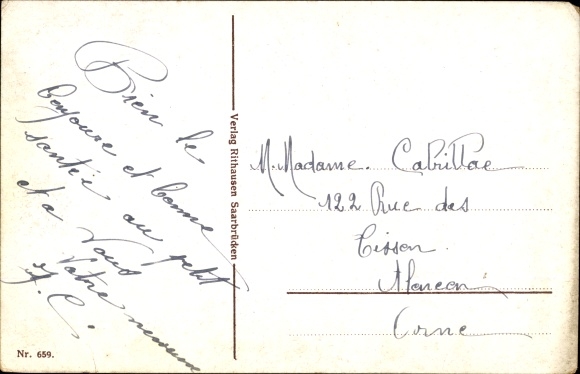 Bien le
bonjour et bonne
santée au petit
et a Vous
Votre neveue
A. C.
Verlag Rithausen Saarbrücken
M. Madame. Cabrillae
122 Rue des
Tisson
Alencon
Orne
Nr. 659.